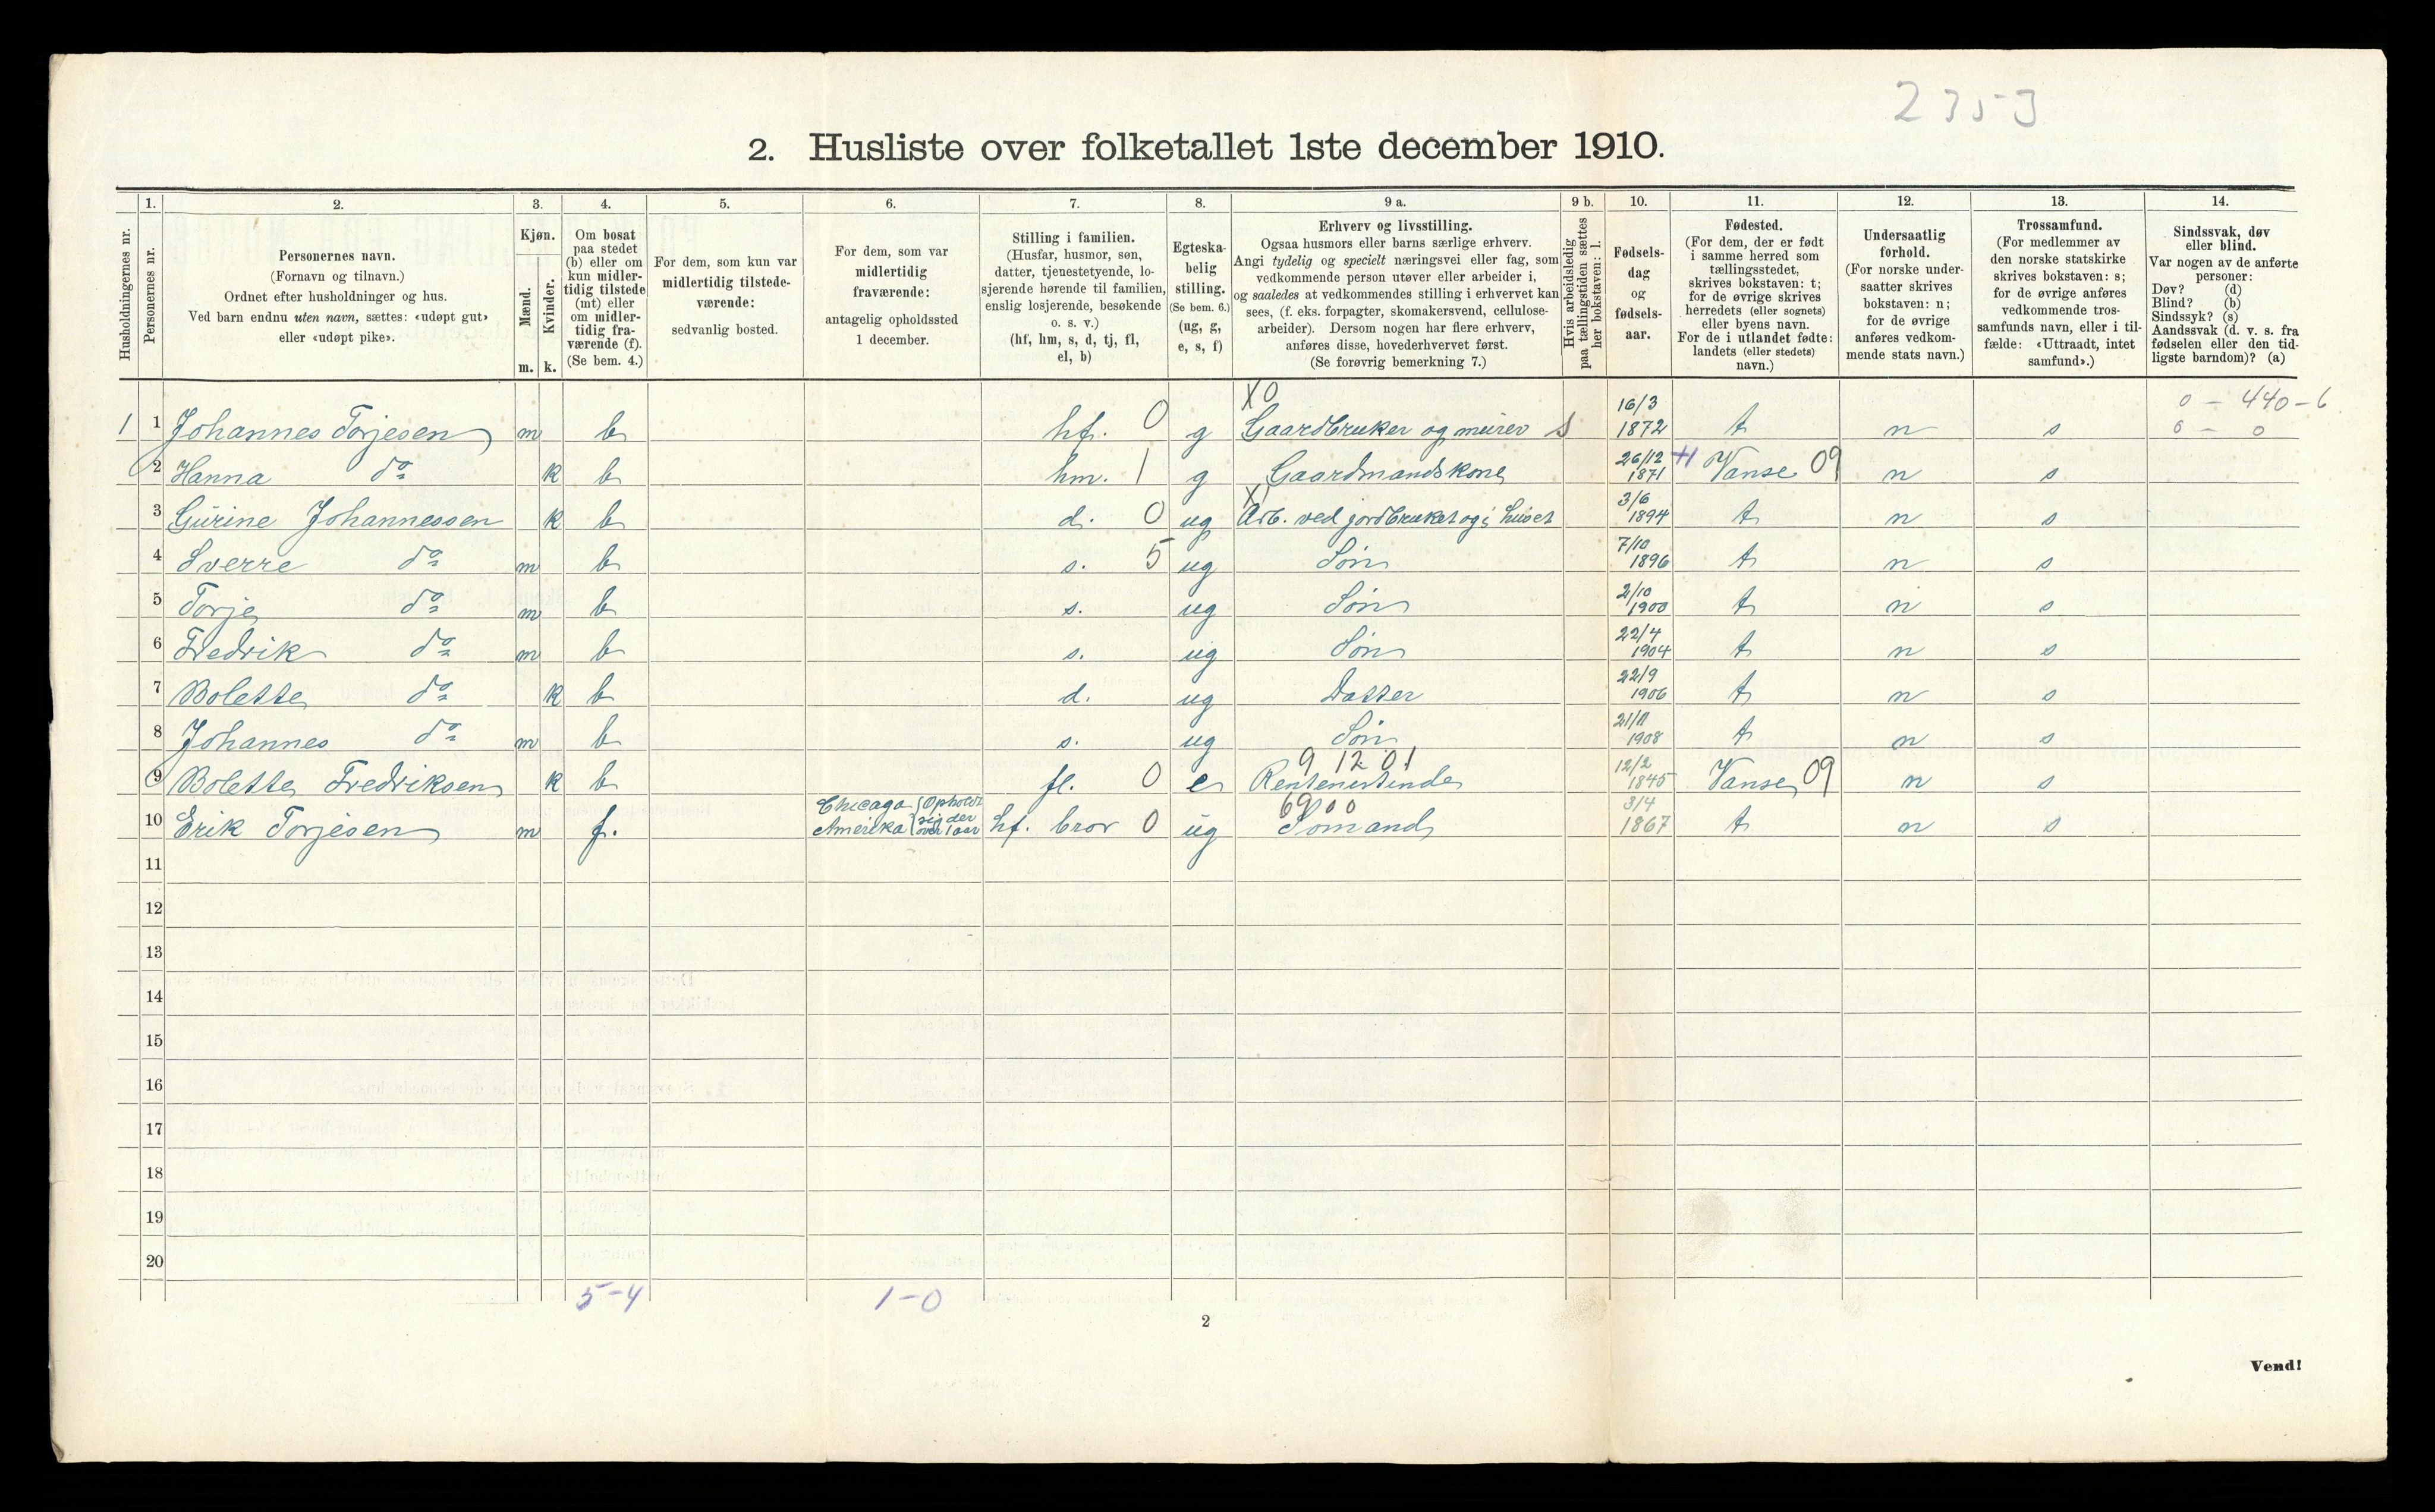 2353
2. Husliste over folketallet 1ste december 1910.
Husholdningernes nr.
1.
Personernes nr.
2.
Personernes navn.
(Fornavn og tilnavn.)
Ordnet efter husholdninger og hus.
Ved barn endnu uten navn, sættes: «udøpt gut»
eller «udøpt pike».
3.
Kjøn.
Mænd.
Kvinder.
m. k.
4.
Om bosat
paa stedet
(b) eller om
kun midler-
tidig tilstede
(mt) eller
om midler-
tidig fra-
værende (f).
(Se bem. 4.)
5.
For dem, som kun var
midlertidig tilstede-
værende:
sedvanlig bosted.
6.
For dem, som var
midlertidig
fraværende:
antagelig opholdssted
1 december.
7.
Stilling i familien.
(Husfar, husmor, søn,
datter, tjenestetyende, lo-
sjerende hørende til familien,
enslig losjerende, besøkende
o. s. v.)
(hf, hm, s, d, tj, fl,
el, b)
8.
Egteska-
belig
stilling.
(Se bem. 6.)
(ug, g,
e, s, f)
9 a.
Erhverv og livsstilling.
Ogsaa husmors eller barns særlige erhverv.
Angi tydelig og specielt næringsvei eller fag, som
vedkommende person utøver eller arbeider i,
og saaledes at vedkommendes stilling i erhvervet kan
sees, (f. eks. forpagter, skomakersvend, cellulose-
arbeider). Dersom nogen har flere erhverv,
anføres disse, hovederhvervet først.
(Se forøvrig bemerkning 7.)
9 b.
Hvis arbeidsledig
paa tællingstiden sættes
her bokstaven: l.
10.
Fødsels-
dag
og
fødsels-
aar.
11.
Fødested.
(For dem, der er født
i samme herred som
tællingsstedet,
skrives bokstaven: t;
for de øvrige skrives
herredets (eller sognets)
eller byens navn.
For de i utlandet fødte:
landets (eller stedets)
navn.)
12.
Undersaatlig
forhold.
(For norske under-
saatter skrives
bokstaven: n;
for de øvrige
anføres vedkom-
mende stats navn.)
13.
Trossamfund.
(For medlemmer av
den norske statskirke
skrives bokstaven: s;
for de øvrige anføres
vedkommende tros-
samfunds navn, eller i til-
fælde: «Uttraadt, intet
samfund».)
14.
Sindssvak, døv
eller blind.
Var nogen av de anførte
personer:
Døv? (d)
Blind? (b)
Sindssyk? (s)
Aandssvak (d. v. s. fra
fødselen eller den tid-
ligste barndom)? (a)
X0 16/3 0 - 440-6
1 1 Johannes Torjesen m b hf. 0 g Gaardbruker og murer s 1872 t n s 0 - 0
2 Hanna do k b hm. 1 g Gaardmandskone 26/12 1871 Vanse 09 n s
3 Gurine Johannessen k b d. 0 ug Arb. ved jordbruket og i huset 3/6 1894 t n s
4 Sverre do m b s. 5 ug Søn 7/10 1896 t n s
5 Torje do m b s. ug Søn 2/10 1900 t n s
6 Fredrik do m b s. ug Søn 22/4 1904 t n s
7 Bolette do k b d. ug Datter 22/9 1906 t n s
8 Johannes do m b s. ug Søn 21/11 1908 t n s
9 12 01
9 Bolette Fredriksen k b fl. 0 e Rentenistinde 12/2 1845 Vanse 09 n s
6900
10 Erik Torjesen m f. Chicago Amerika (Opholdt sig der over 1 aar hf. bror 0 ug Sømand 3/4 1867 t n s
11
12
13
14
15
16
17
18
19
20
5-4 1-0
2
Vend!